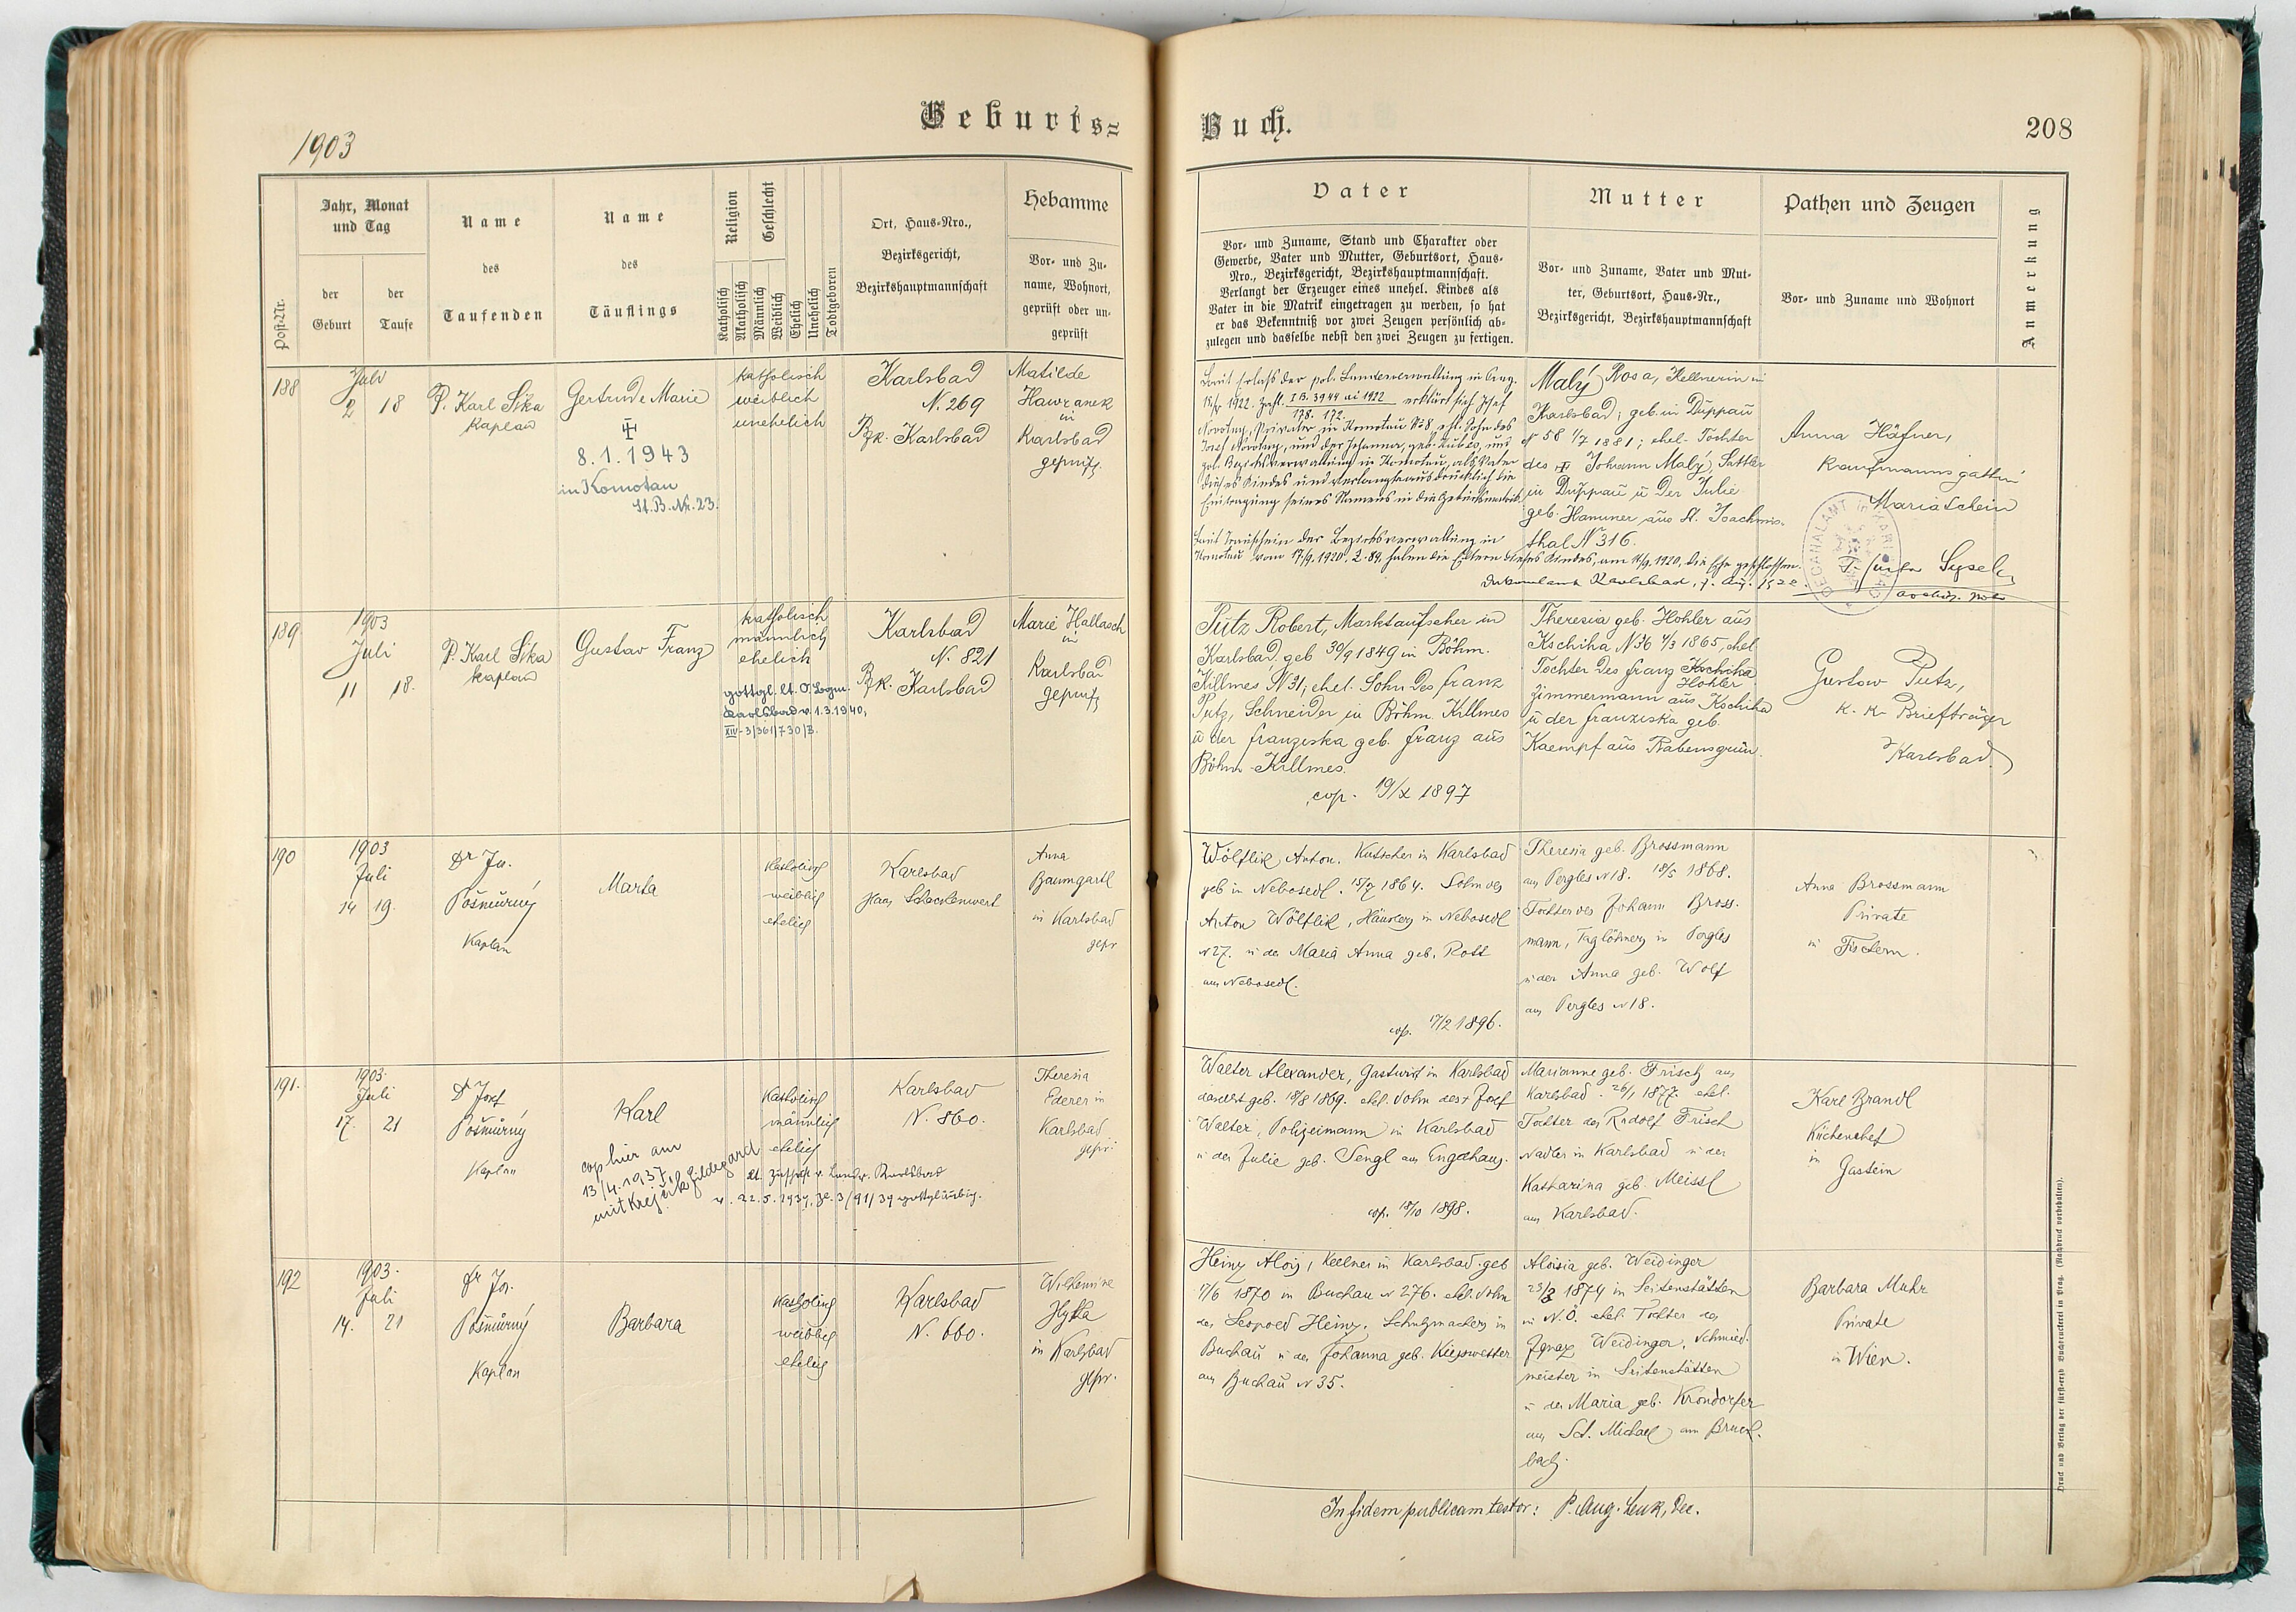 1903
Geburts=
Buch.
208
Post-Nr.
Jahr, Monat
und Tag
der
Geburt
der
Taufe
Name
des
Taufenden
Name
des
Täuflings
Religion
Geschlecht
Katholisch
Akatholisch
Männlich
Weiblich
Ehelich
Unehelich
Todtgeboren
Ort, Haus-Nro.,
Bezirksgericht,
Bezirkshauptmannschaft
Hebamme
Vor- und Zu-
name, Wohnort,
geprüft oder un-
geprüft
Vater
Vor- und Zuname, Stand und Charakter oder
Gewerbe, Vater und Mutter, Geburtsort, Haus-
Nro., Bezirksgericht, Bezirkshauptmannschaft.
Verlangt der Erzeuger eines unehel. Kindes als
Vater in die Matrik eingetragen zu werden, so hat
er das Bekenntniß vor zwei Zeugen persönlich ab-
zulegen und dasselbe nebst den zwei Zeugen zu fertigen.
Mutter
Vor- und Zuname, Vater und Mut-
ter, Geburtsort, Haus-Nr.,
Bezirksgericht, Bezirkshauptmannschaft
Pathen und Zeugen
Vor- und Zuname und Wohnort
Anmerkung
188
Juli
2 18
P. Karl Sika
Kaplan
Gertrude Marie
8.1.1943
in Komotau
St.B.Nr.23.
katholisch
weiblich
unehelich
Karlsbad
N. 269
Bzk. Karlsbad
Matilde
Hawranek
in
Karlsbad
geprüft.
Laut Erlass der pol. Landesverwaltung in Prag
1922 Zahl. I B. 3944 ai 1922 erklärt sich Josef
178. 172.
Novotny, Privater in Komotau N. 8 ehl. Sohn des
Josef Novotny, und der Johanna, geb. und
pol. Bezirksverwaltung in Komotau, als Vater
dieses Kindes und verlangte ausdrücklich die
Eintragung seines Namens in die Geburtsmatrik
Laut Trauschein der Bezirksverwaltung in
Komotau vom 17/9.1920, Z. 89, haben die Eltern dieses Kindes, am 1920, die Ehe geschlossen.
Karlsbad,
Malý Rosa, Kellnerin in
Karlsbad; geb. in Duppau
N 58 1/7 1881; ehel. Tochter
des Johann Malý, Sattler
in Duppau u der Julie
geb. Hammer aus St. Joachims-
thal N 316.
Anna Häfner,
Kaufmannsgattin
Mariaschein
DECANALAMT
189
1903
Juli
11 18.
P. Karl Sika
Kaplan
Gustav Franz
katholisch
männlich
ehelich
gottgl. lt. O.
Karlsbad v. 1.3.1940,
XIV-3/361/730/3.
Karlsbad
N. 821
Bzk. Karlsbad
Marie Hallasch
in
Karlsbad
geprüft
Putz Robert, Marktaufseher in
Karlsbad, geb 30/9 1849 in Böhm.
Killmes N 31; ehel. Sohn des Franz
Putz, Schneider in Böhm. Killmes
u der Franziska geb. Franz aus
Böhm Killmes.
cop. 19/X 1897
Theresia geb. Hohler aus
Kschiha N 36 4/3 1865, ehel
Tochter des Franz Kschiha
Hohler
Zimmermann aus Kschiha
u der Franziska geb.
Kaempf aus Rabensgrün.
Gustav Putz,
k. k. Briefträger
Karlsbad.
190
1903
Juli
14 19.
Dr Jos.
Pošmůrný
Kaplan
Marta
Katholisch
weiblich
ehelich
Karlsbad
Haus Schachtenwert
Anna
Baumgartl
in Karlsbad
gepr
Wölflik Anton. Kutscher in Karlsbad
geb in Nebosedl. 15/7 1864. Sohn des
Anton Wölflik, Häusler in Nebosedl
N 27. u der Maria Anna geb. Rott
aus Nebosedl.
cop. 17/2 1896.
Theresia geb. Brossmann
aus Pergles N 18. 18/5 1868.
Tochter des Johann Bross-
mann, Taglöhner in Pergles
u der Anna geb. Wolf
aus Pergles N 18.
Anna Brossmann
Private
in Fischern.
191.
1903.
Juli
17. 21
Dr Josef
Pošmůrný
Kaplan
Karl
cop hier am
13/4.1937
mit Krejčik Hildegard
Katholisch
männlich
ehelich
lt. Zuschrift v. Landr. Karlsbad
v. 22.5.1939, Zl. 3/91/39 gottgläubig.
Karlsbad
N. 860.
Theresia
Ederer in
Karlsbad
gepr.
Walter Alexander, Gastwirt in Karlsbad
daselbst geb. 18/8 1869. ehel. Sohn des + Josef
Walter, Polizeimann in Karlsbad
u der Julie geb. Sengl aus Engelhaus.
cop. 18/10 1898.
Marianne geb. Frisch aus
Karlsbad. 26/1 1877. ehel.
Tochter des Rudolf Frisch
Nadler in Karlsbad u der
Katharina geb. Meissl
aus Karlsbad.
Karl Brandl
Küchenchef
in
Gastein
192
1903.
Juli
14. 21
Dr Jos.
Pošmůrný
Kaplan
Barbara
Katholisch
weiblich
ehelich
Karlsbad
N. 660.
Wilhemine
Hytka
in Karlsbad
gepr.
Heinz Alois, Kellner in Karlsbad. geb
17/6 1870 in Buchau N 276. ehel. Sohn
des Leopold Heinz, Schuhmachers in
Buchau u der Johanna geb. Kieswetter
aus Buchau N 35.
Aloisia geb. Weidinger
23/3 1874 in Seitenstätten
in N.Ö. ehel. Tochter des
Ignaz Weidinger, Schmied-
meister in Seitenstätten
u der Maria geb. Krondorfer
aus St. Michael am Bruck-
bach.
Barbara Muhr
Private
in Wien.
In fidem publicam testor: P. Aug. Leuk, Dec.
Druck und Verlag der fürst-erzb Buchdruckerei in Prag. (Nachdruck vorbehalten).